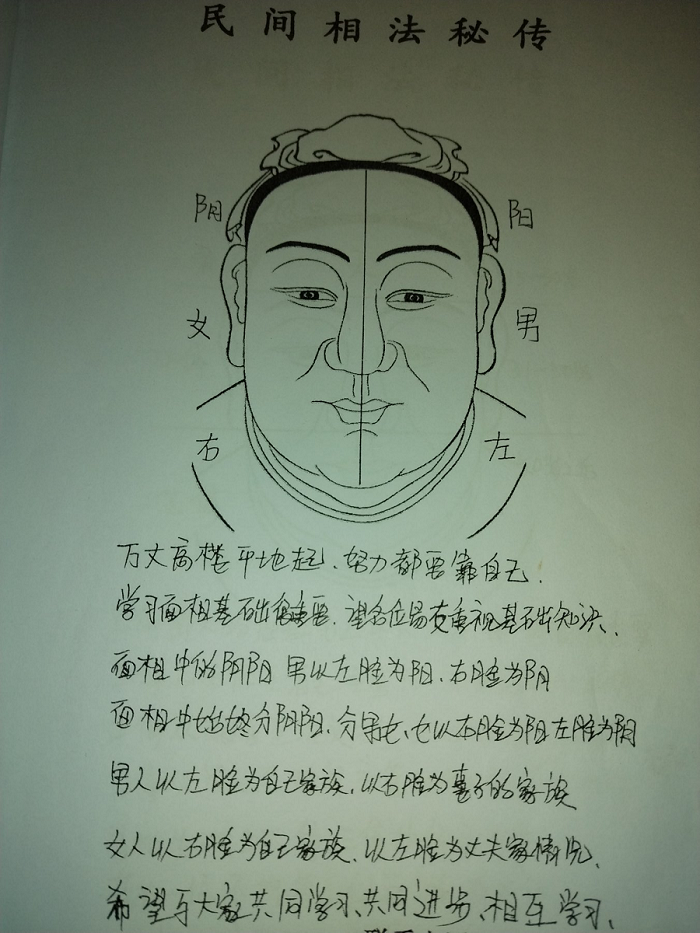 民间相法秘传
阴 阳
女 男
右 左
万丈高楼平地起、努力都要靠自己.
学习面相基础很重要.望各位易友重视基础知识、
面相中的阴阳 男以左脸为阳.右脸为阴
面相中始终分阴阳.分男女、女以右脸为阳左脸为阴
男人以左脸为自己家族.以右脸为妻子的家族
女人以右脸为自己家族.以左脸为丈夫家情况、
希望与大家共同学习、共同进步、相互学习、